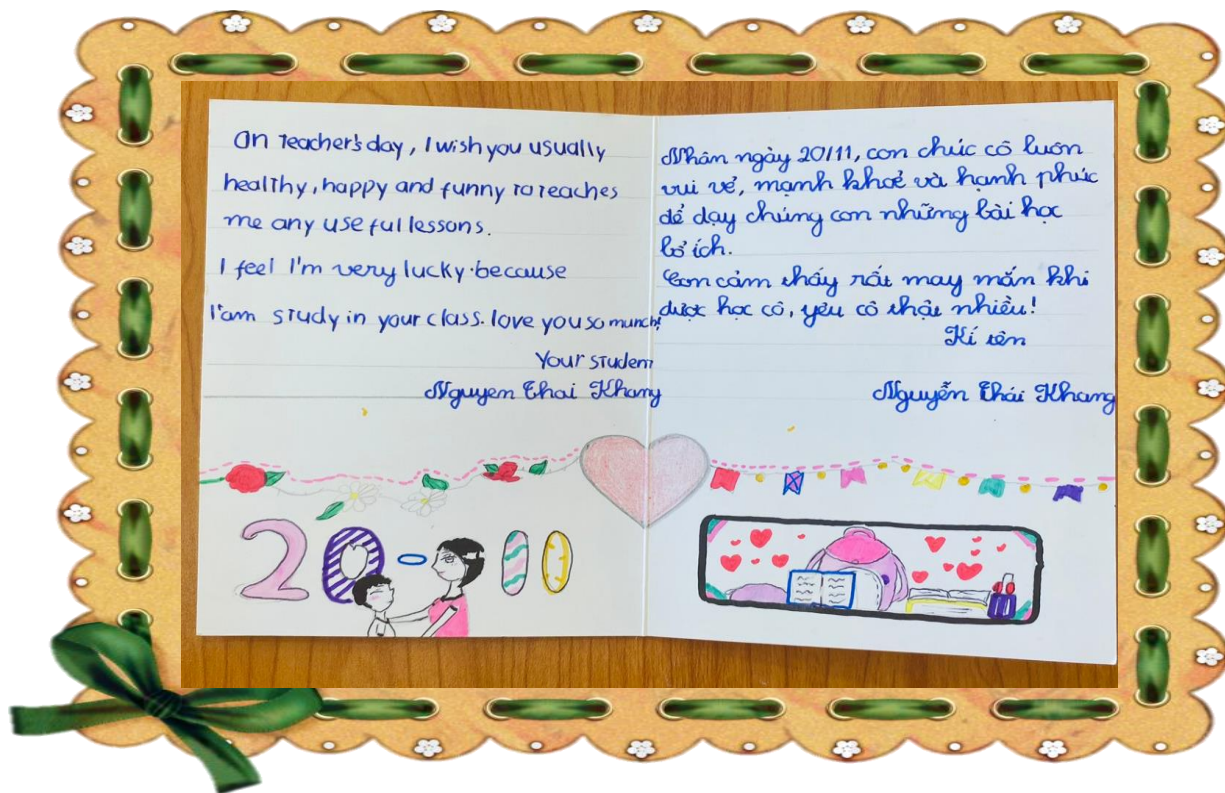 On Teacher's day, I wish you usually
healthy, happy and funny to teaches
me any useful lessons.
I feel I'm very lucky because
I'am study in your class. love you so munch!
Your student
Nguyen Thai Khang
20-11
Nhân ngày 20/11, con chúc cô luôn
vui vẻ, mạnh khoẻ và hạnh phúc
để dạy chúng con những bài học
bổ ích.
Con cảm thấy rất may mắn khi
được học cô, yêu cô thật nhiều!
Kí tên
Nguyễn Thái Khang